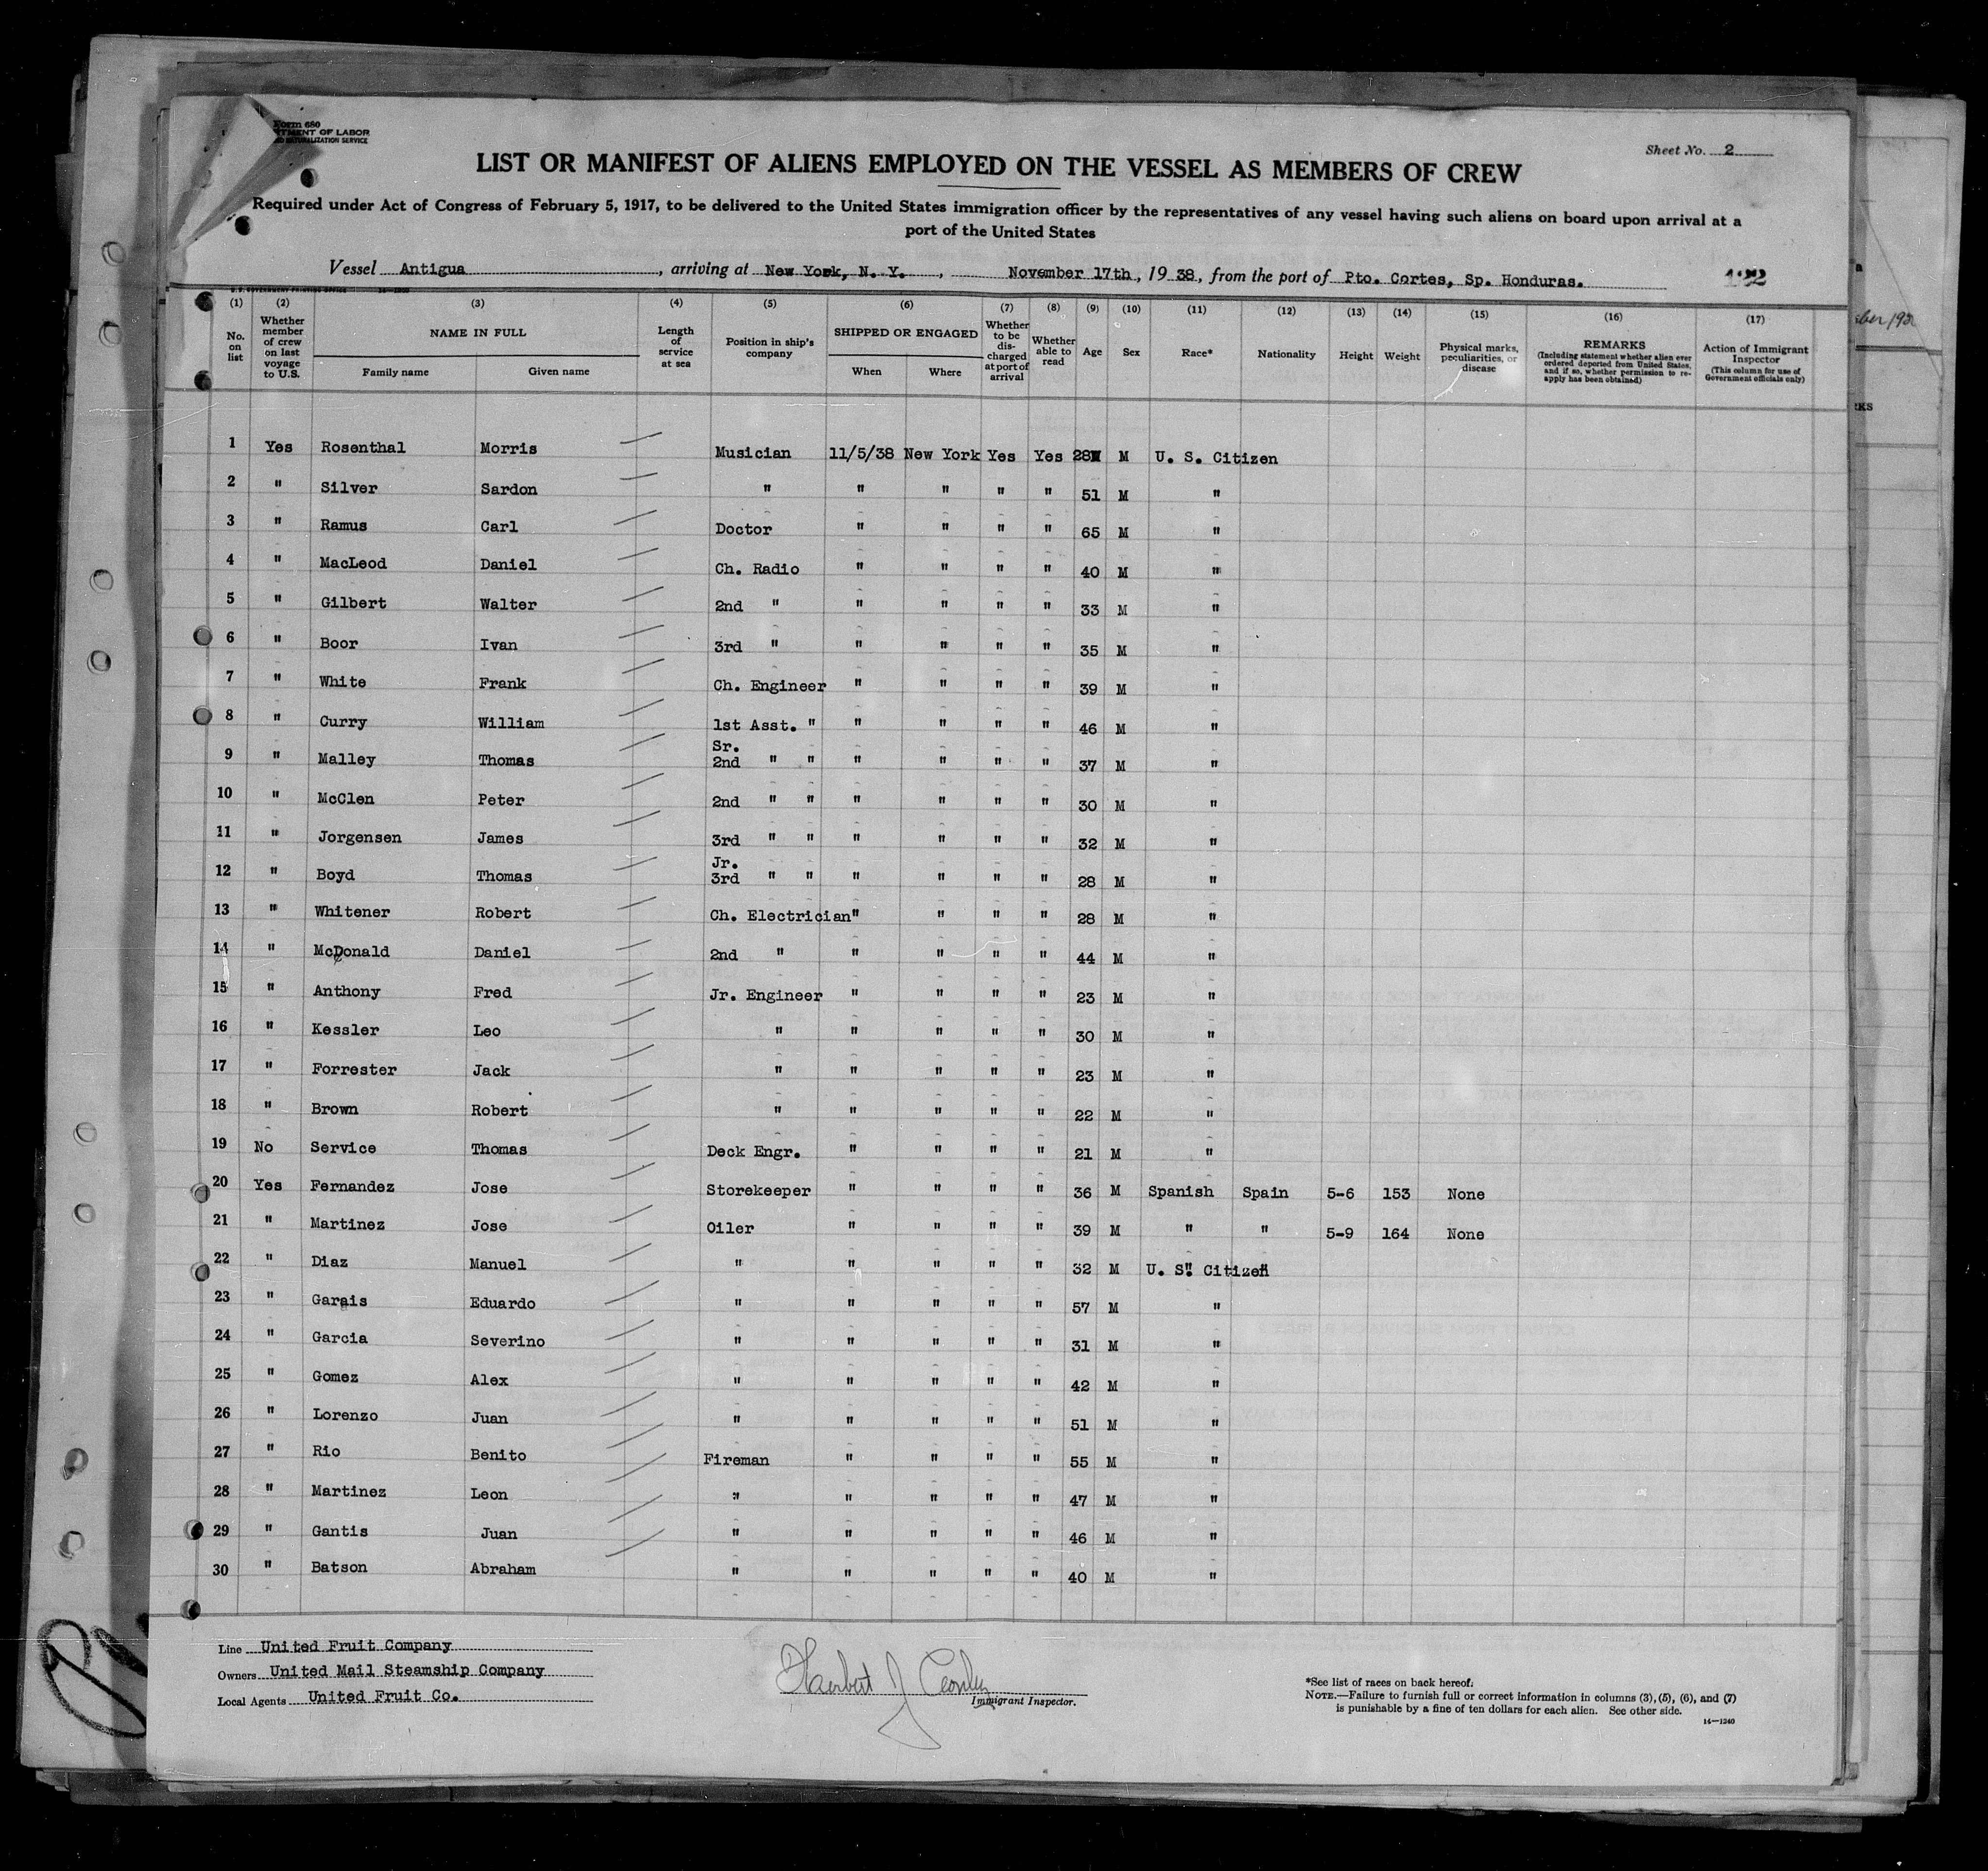 Form 680
TMENT OF LABOR
NATURALIZATION SERVICE
Sheet No. 2
LIST OR MANIFEST OF ALIENS EMPLOYED ON THE VESSEL AS MEMBERS OF CREW
Required under Act of Congress of February 5, 1917, to be delivered to the United States immigration officer by the representatives of any vessel having such aliens on board upon arrival at a
port of the United States
Vessel Antigua, arriving at New York, N. Y., November 17th, 1938, from the port of Pto. Cortes, Sp. Honduras.
(1) (2) (3) (4) (5) (6) (7) (8) (9) (10) (11) (12) (13) (14) (15) (16) (17)
No. on list
Whether member of crew on last voyage to U.S.
NAME IN FULL
Family name Given name
Length of service at sea
Position in ship's company
SHIPPED OR ENGAGED
When Where
Whether to be discharged at port of arrival
Whether able to read
Age
Sex
Race*
Nationality
Height
Weight
Physical marks, peculiarities, or disease
REMARKS
(Including statement whether alien ever ordered deported from United States, and if so, whether permission to re-apply has been obtained)
Action of Immigrant Inspector
(This column for use of Government officials only)
1 Yes Rosenthal Morris Musician 11/5/38 New York Yes Yes 28 M U. S. Citizen
2 " Silver Sardon " " " " " 51 M "
3 " Ramus Carl Doctor " " " " 65 M "
4 " MacLeod Daniel Ch. Radio " " " " 40 M "
5 " Gilbert Walter 2nd " " " " " 33 M "
6 " Boor Ivan 3rd " " " " " 35 M "
7 " White Frank Ch. Engineer " " " " 39 M "
8 " Curry William 1st Asst. " " " " " 46 M "
9 " Malley Thomas Sr. 2nd " " " " " " 37 M "
10 " McClen Peter 2nd " " " " " " 30 M "
11 " Jorgensen James 3rd " " " " " " 32 M "
12 " Boyd Thomas Jr. 3rd " " " " " " 28 M "
13 " Whitener Robert Ch. Electrician " " " " 28 M "
14 " McDonald Daniel 2nd " " " " " 44 M "
15 " Anthony Fred Jr. Engineer " " " " 23 M "
16 " Kessler Leo " " " " " 30 M "
17 " Forrester Jack " " " " " 23 M "
18 " Brown Robert " " " " " 22 M "
19 No Service Thomas Deck Engr. " " " " 21 M "
20 Yes Fernandez Jose Storekeeper " " " " 36 M Spanish Spain 5-6 153 None
21 " Martinez Jose Oiler " " " " 39 M " " 5-9 164 None
22 " Diaz Manuel " " " " " 32 M U. S. Citizen
23 " Garais Eduardo " " " " " 57 M "
24 " Garcia Severino " " " " " 31 M "
25 " Gomez Alex " " " " " 42 M "
26 " Lorenzo Juan " " " " " 51 M "
27 " Rio Benito Fireman " " " " 55 M "
28 " Martinez Leon " " " " " 47 M "
29 " Gantis Juan " " " " " 46 M "
30 " Batson Abraham " " " " " 40 M "
Line United Fruit Company
Owners United Mail Steamship Company
Local Agents United Fruit Co.
Immigrant Inspector.
*See list of races on back hereof.
NOTE.—Failure to furnish full or correct information in columns (3), (5), (6), and (7)
is punishable by a fine of ten dollars for each alien. See other side.
14—1240